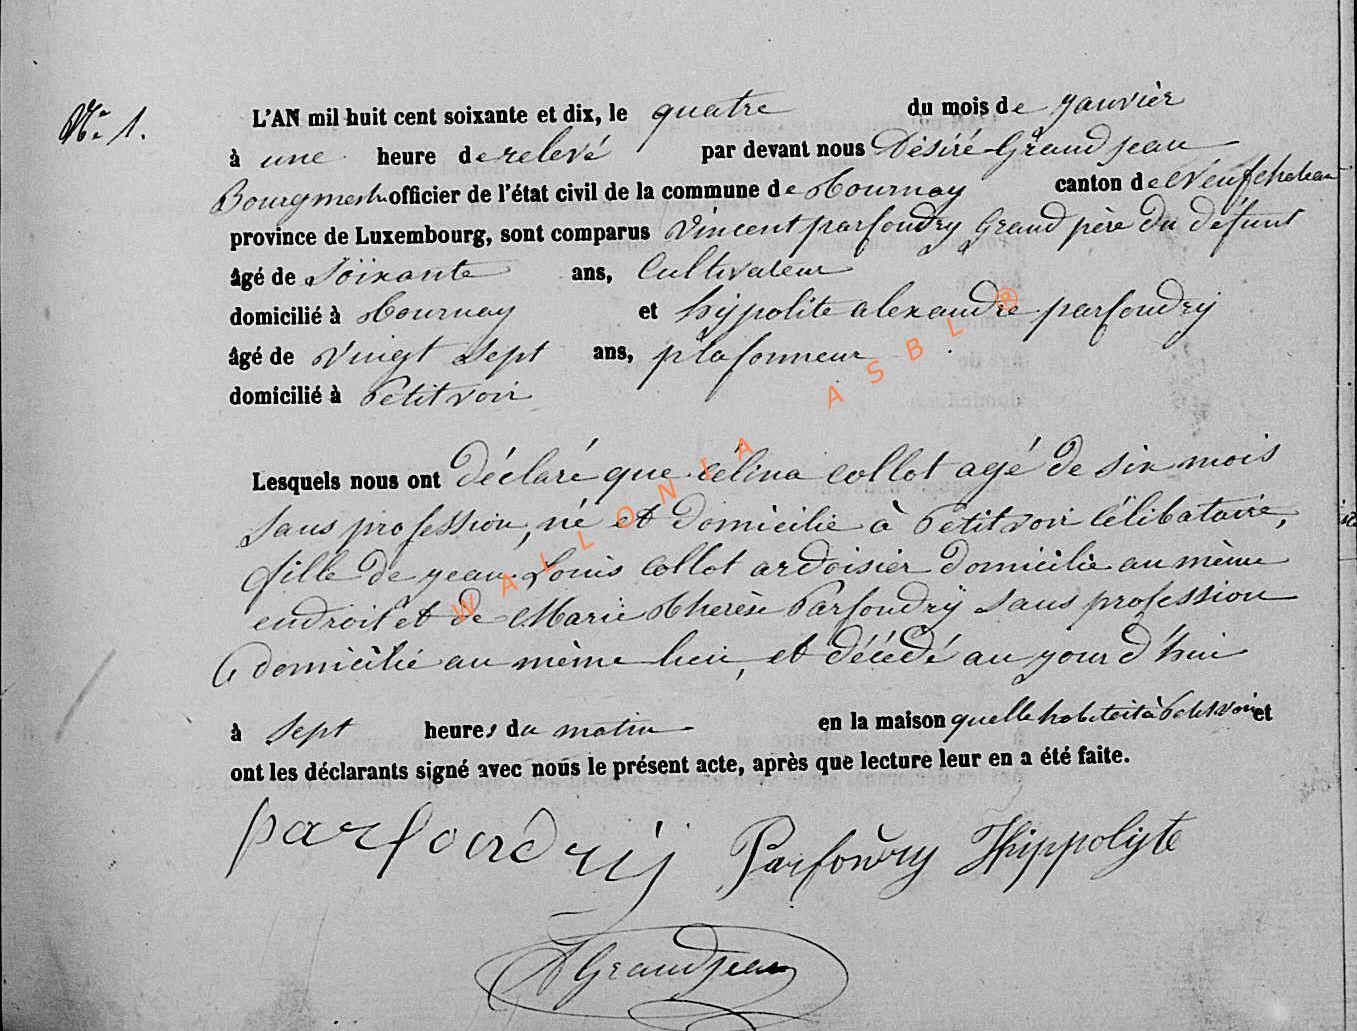 N° 1.
L'AN mil huit cent soixante et dix, le quatre du mois de janvièr
à une heure de relevé par devant nous Désiré Grandjean
Bourgmestre officier de l'état civil de la commune de Tournay canton de Neufchateau
province de Luxembourg, sont comparus Vincent parfondry Grand père du défunt
âgé de soixante ans, Cultivateur
domicilié à Tournay et hypolite alexandre parfondry
âgé de vingt sept ans, plafonneur
domicilié à Petitvoir
Lesquels nous ont déclaré que célina collot agé de six mois
sans profession, né et domicilié à Petitvoir célibataire,
fille de jean Louis Collot ardoisier domicilié au même
endroit et de Marie Therèse Parfondry sans profession
domicilié au même lieu, et décédé au jour d'hui
à sept heures du matin en la maison quelle habitait à Petitvoir et
ont les déclarants signé avec nous le présent acte, après que lecture leur en a été faite.
parfondrij Parfondry Hippolyte
D Grandjean
WALLONIA ASBL ®